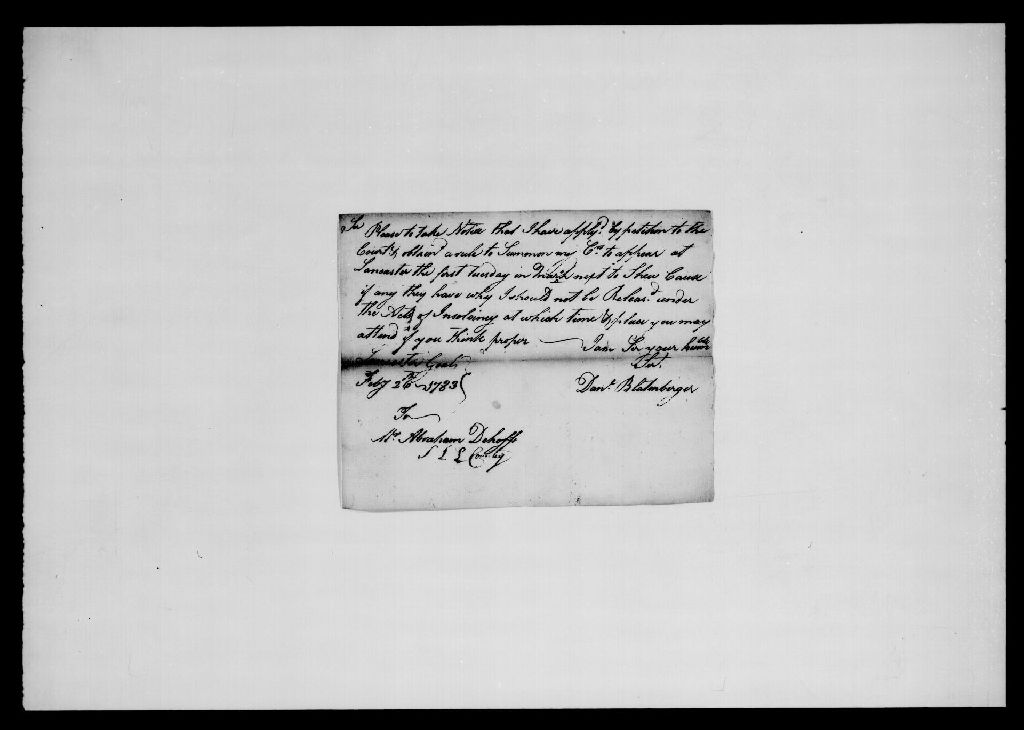 Sir
Please to take Notice that I have apply'd by petition to the
Court & obtain'd a rule to Summon my Crs to appear at
Lancaster the first tuesday in March next to Shew Cause
if any they have why I should not be Releas'd under
the Acts of Insolvency at which time & place you may
attend if you think proper — I am Sir your humble
Lancaster Goal Sert.
Feby 26th 1783 Danl. Blatenberger
To
Mr Abraham Dehoff
S L L